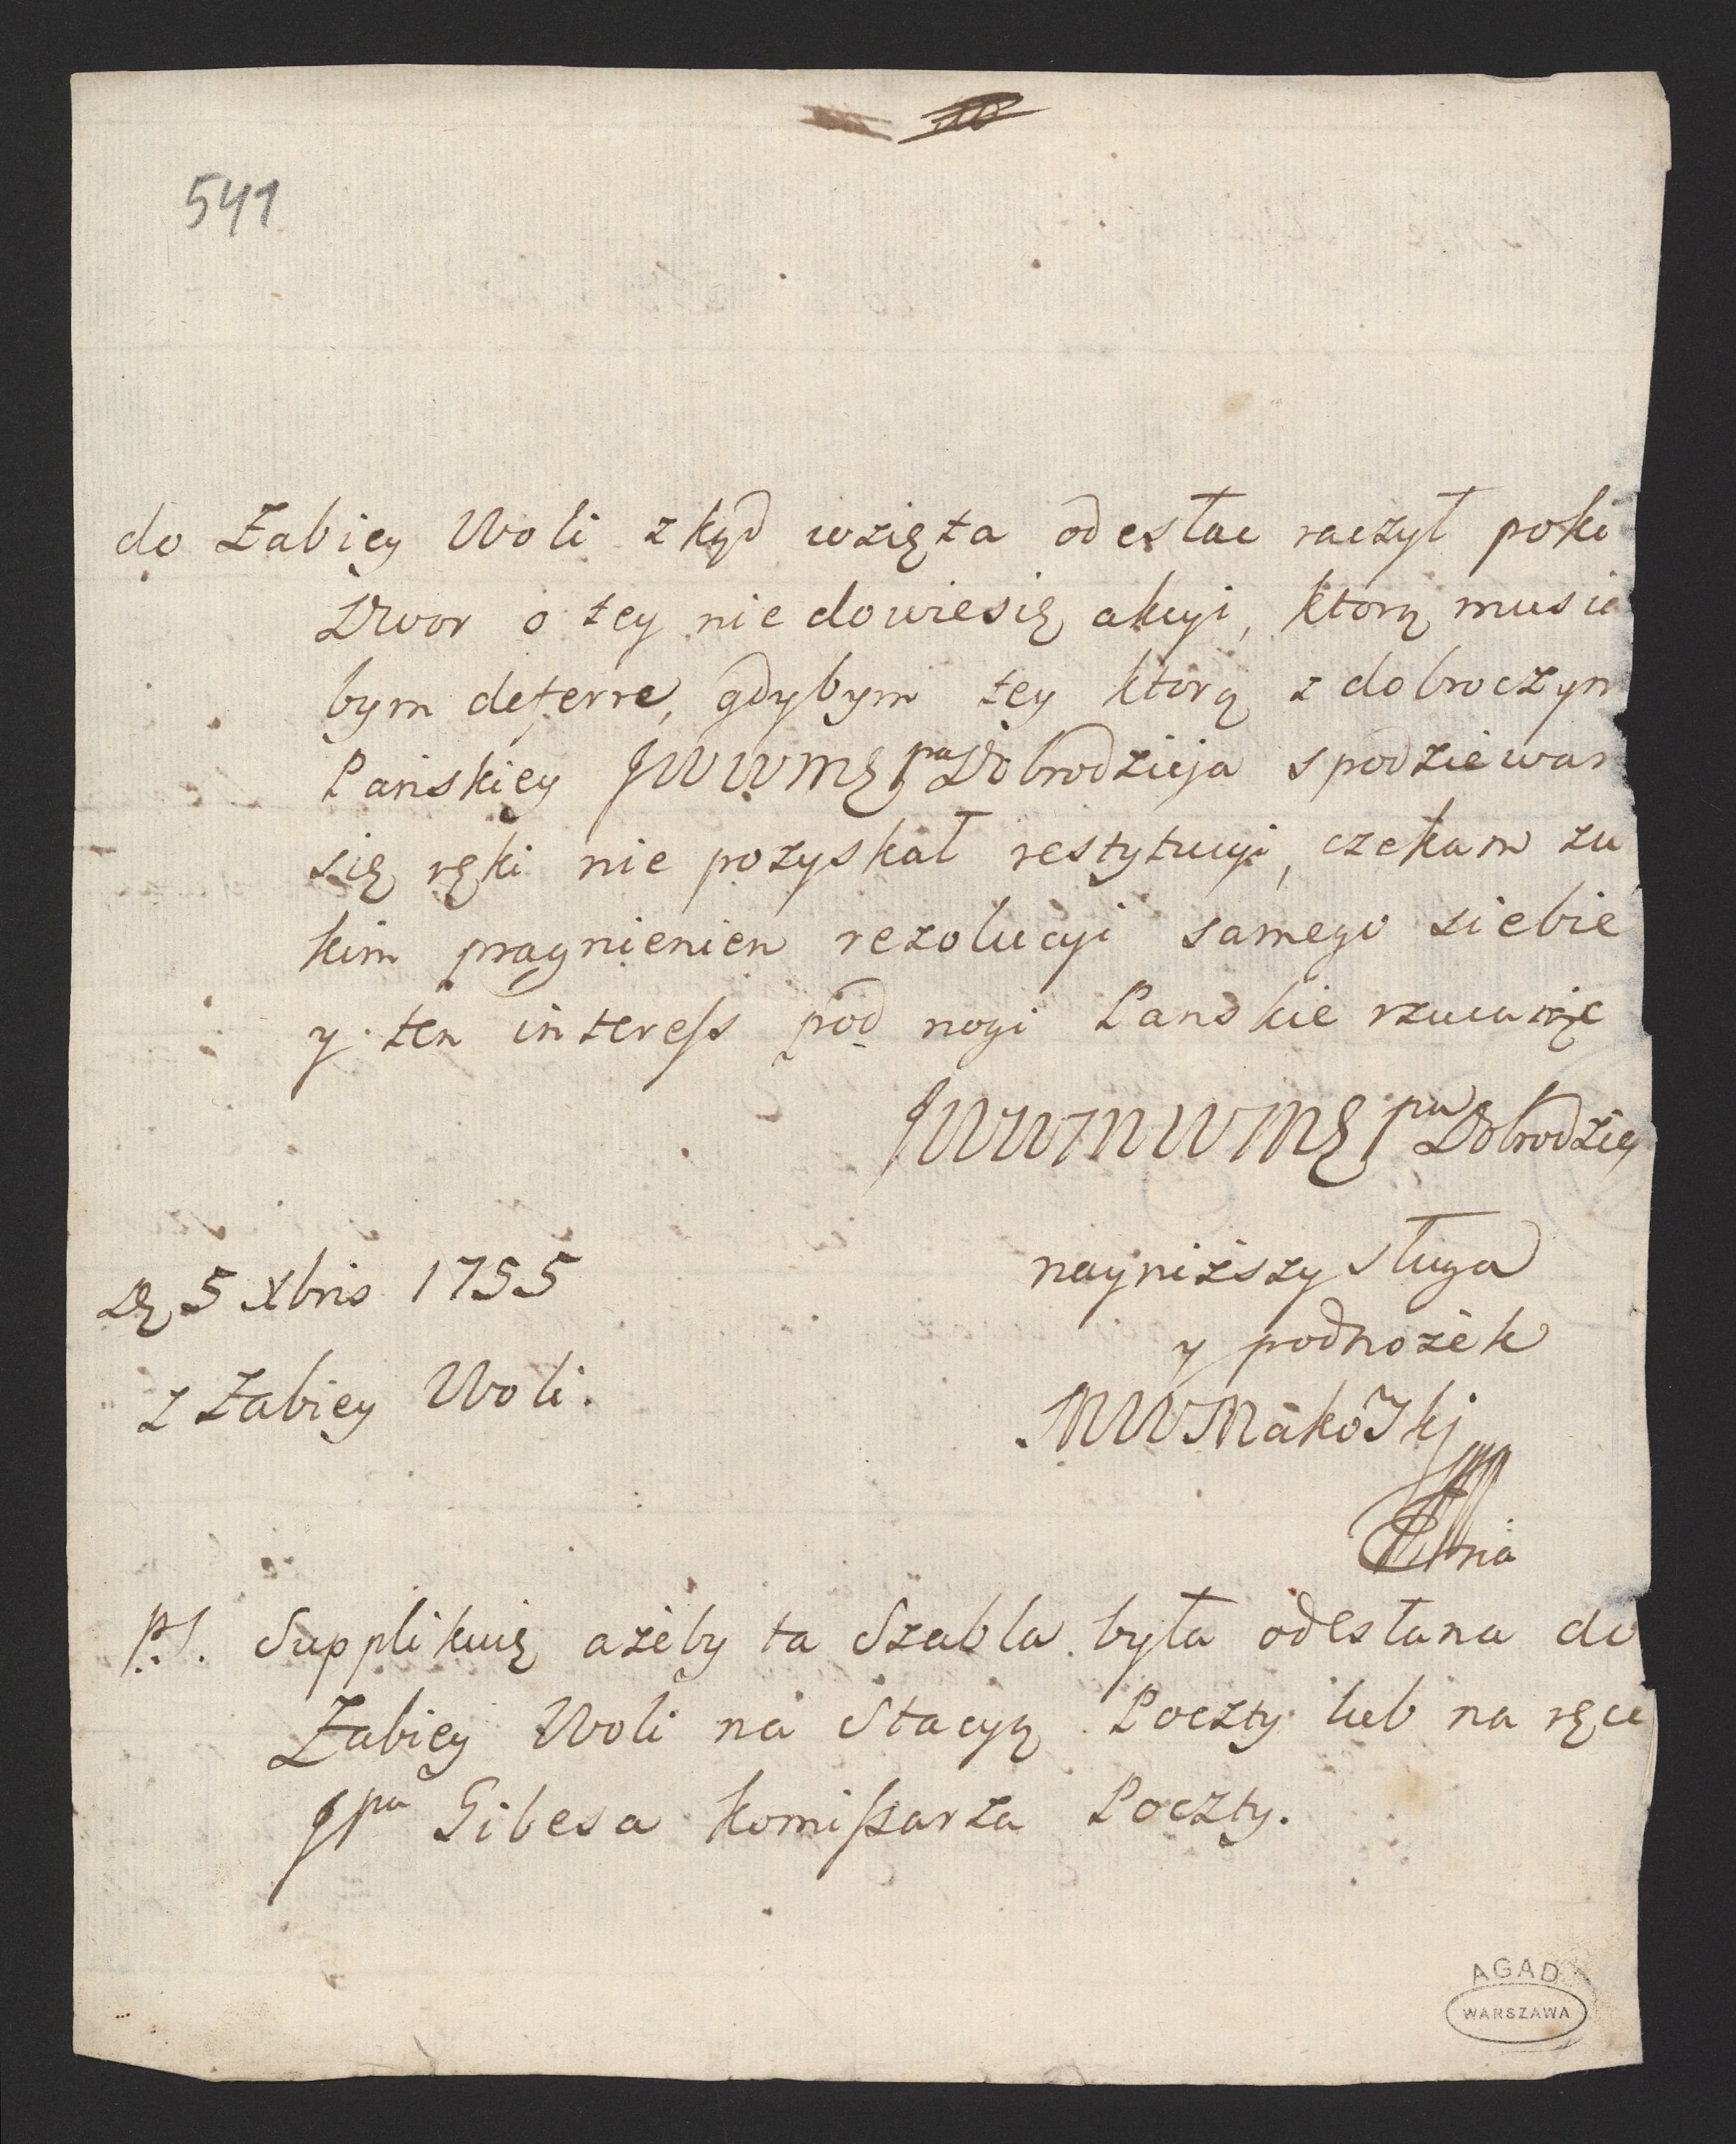 541
do Żabiey Woli zkąd wzięta odesłac raczył poki
Dwor o tey nie dowiesię akcyi, ktorą musia
bym deferre, gdybym tey ktorą z dobroczyn
Pańskiey JWWMęPna Dobrodzieja spodziewan
się ręki nie pozyskał restytucyi, czekam zu
kim pragnienien rezolucyi samego siebie
y ten interess pod nogi Panskie rzucaiąc
JWWMWMęPna Dobrodziey
nayniższy sługa
Dą 5 Xbris 1755
y podnożek
z Żabiey Woli.
MWMakoSkj
PS. Supplikuię ażeby ta Szabla była odesłana do
Żabiey Woli na Stacyą Poczty lub na ręce
JPna Gibesa Komissarza Poczty.
AGAD
WARSZAWA